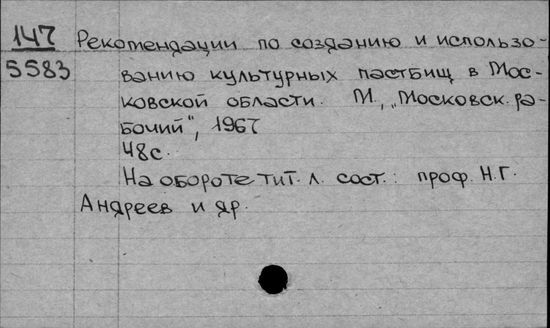 147 Рекомендации по созданию и использо-
5583 ванию культурных пастбищ в Мос-
ковской области. М., „Московск. ра-
бочий", 1967
48с.
На обороте тит. л. сост.: проф. Н.Г.
Андреев и др.